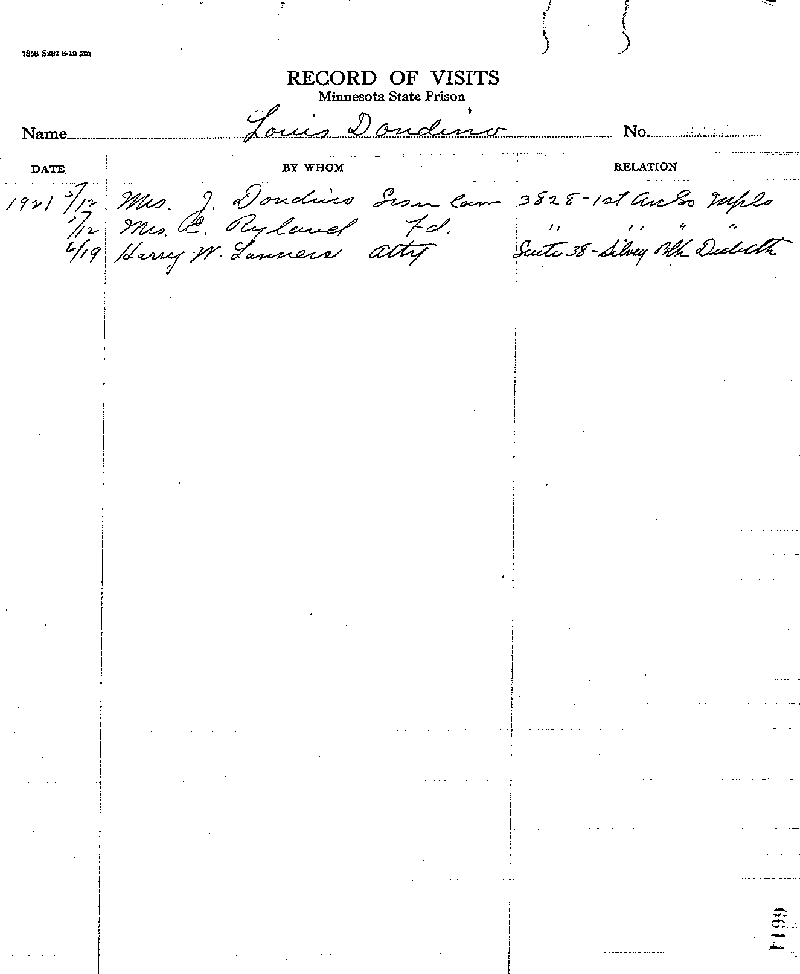 RECORD OF VISITS
Minnesota State Prison
Name Louis Dondino No.
DATE BY WHOM RELATION
1921 5/12 Mrs. J. Dondino 3828-1st Ave So Mpls
/12 Mrs. C. Ryland Fd. " " " "
6/19 Harry W. Lanners Atty Suite 38-Silvey Blk Duluth